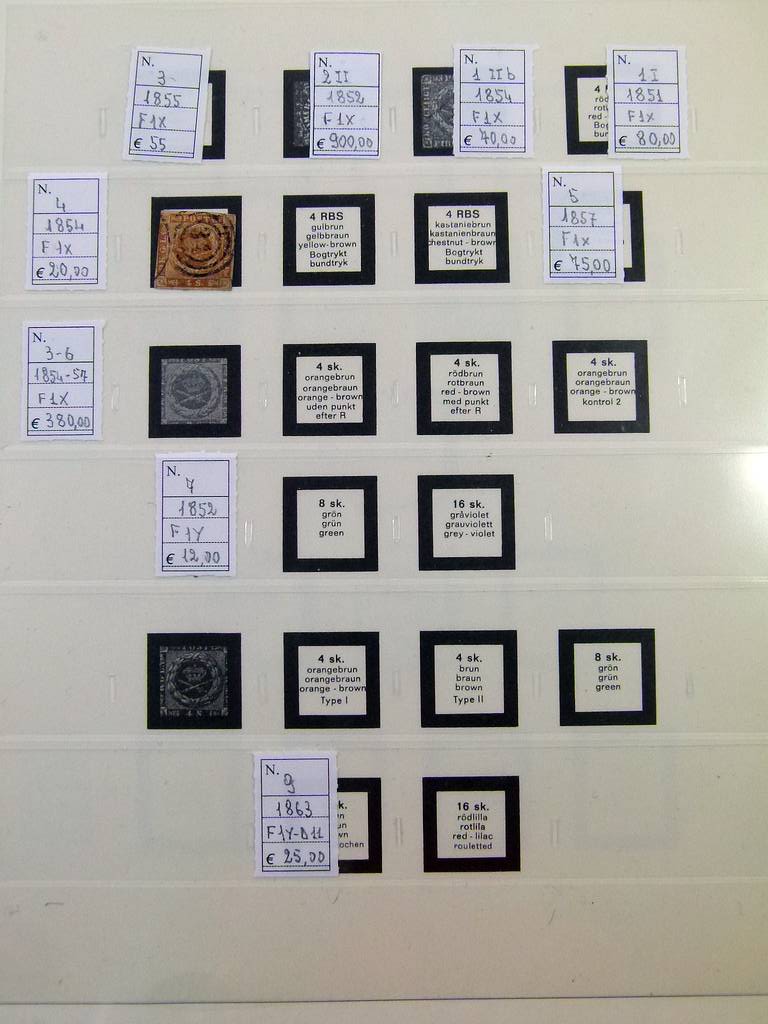 N.
3
1855
F1X
€ 55
N.
2 II
1852
F1X
€ 900,00
N.
1 IIb
1854
F1X
€ 70,00
N.
1 I
1851
F1X
€ 80,00
N.
4
1854
F1X
€ 20,00
4 RBS
gulbrun
gelbbraun
yellow-brown
Bogtrykt
bundtryk
4 RBS
kastaniebrun
kastanienbraun
chestnut - brown
Bogtrykt
bundtryk
N.
5
1857
F1X
€ 75,00
N.
3-6
1854-57
F1X
€ 380,00
4 sk.
orangebrun
orangebraun
orange - brown
uden punkt
efter R
4 sk.
rödbrun
rotbraun
red - brown
med punkt
efter R
4 sk.
orangebrun
orangebraun
orange - brown
kontrol 2
N.
7
1852
F1Y
€ 12,00
8 sk.
grön
grün
green
16 sk.
gråviolet
grauviolett
grey - violet
4 sk.
orangebrun
orangebraun
orange - brown
Type I
4 sk.
brun
braun
brown
Type II
8 sk.
grön
grün
green
N.
9
1863
F1Y-D11
€ 25,00
16 sk.
rödlilla
rotlila
red - lilac
rouletted